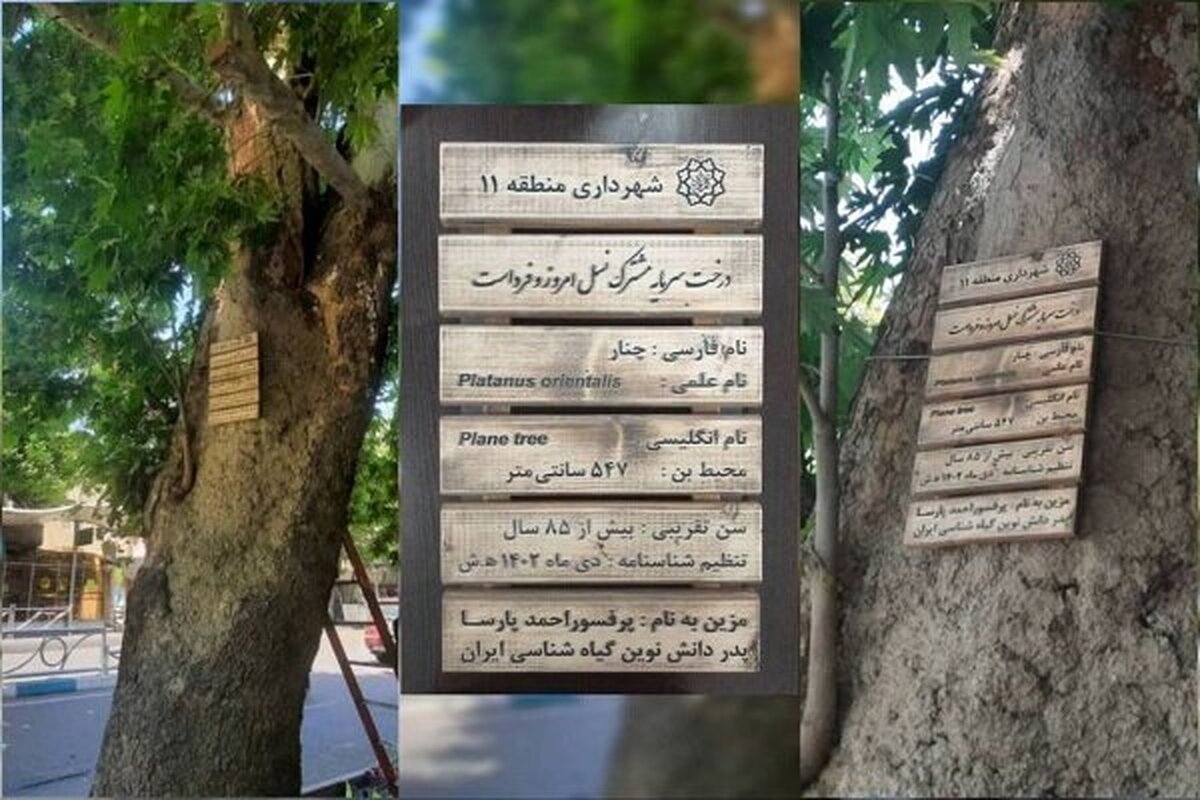 شهرداری منطقه ۱۱
درخت سرمایه مشترک نسل امروز و فرداست
نام فارسی : چنار
نام علمی : Platanus orientalis
نام انگلیسی Plane tree
محیط بن : ۵۴۷ سانتی‌متر
سن تقریبی : بیش از ۸۵ سال
تنظیم شناسنامه : دی ماه ۱۴۰۲ ه.ش
مزین به نام : پرفسوراحمد پارسا
پدر دانش نوین گیاه شناسی ایران
شهرداری منطقه ۱۱
درخت سرمایه مشترک نسل امروز و فرداست
نام فارسی : چنار
نام علمی Platanus orientalis
نام انگلیسی Plane tree
محیط بن ۵۴۷ سانتی‌متر
سن تقریبی : بیش از ۸۵ سال
تنظیم شناسنامه : دی ماه ۱۴۰۲ ه.ش
مزین به نام : پرفسوراحمد پارسا
پدر دانش نوین گیاه شناسی ایران